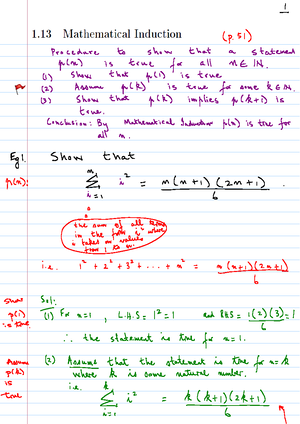 1
1.13 Mathematical Induction (p.51)
Procedure to show that a statement
p(n) is true for all n ∈ ℕ.
(1) Show that p(1) is true
(2) Assume p(k) is true for some k ∈ ℕ.
(3) Show that p(k) implies p(k+1) is
true.
Conclusion: By Mathematical Induction p(n) is true for
all n.
Eg1. Show that
p(n): n Σ i=1 i² = n(n+1)(2n+1) / 6 .
the sum of all terms
in the form i² where
i takes on values
from 1 to n.
i.e. 1² + 2² + 3² + ... + n² = n(n+1)(2n+1) / 6
Show p(1) is true
Sol:
(1) For n=1, L.H.S = 1² = 1 and RHS = 1(2)(3) / 6 = 1
∴ the statement is true for n=1.
Assume p(k) is true
(2) Assume that the statement is true for n=k
where k is some natural number.
i.e. k Σ i=1 i² = k(k+1)(2k+1) / 6